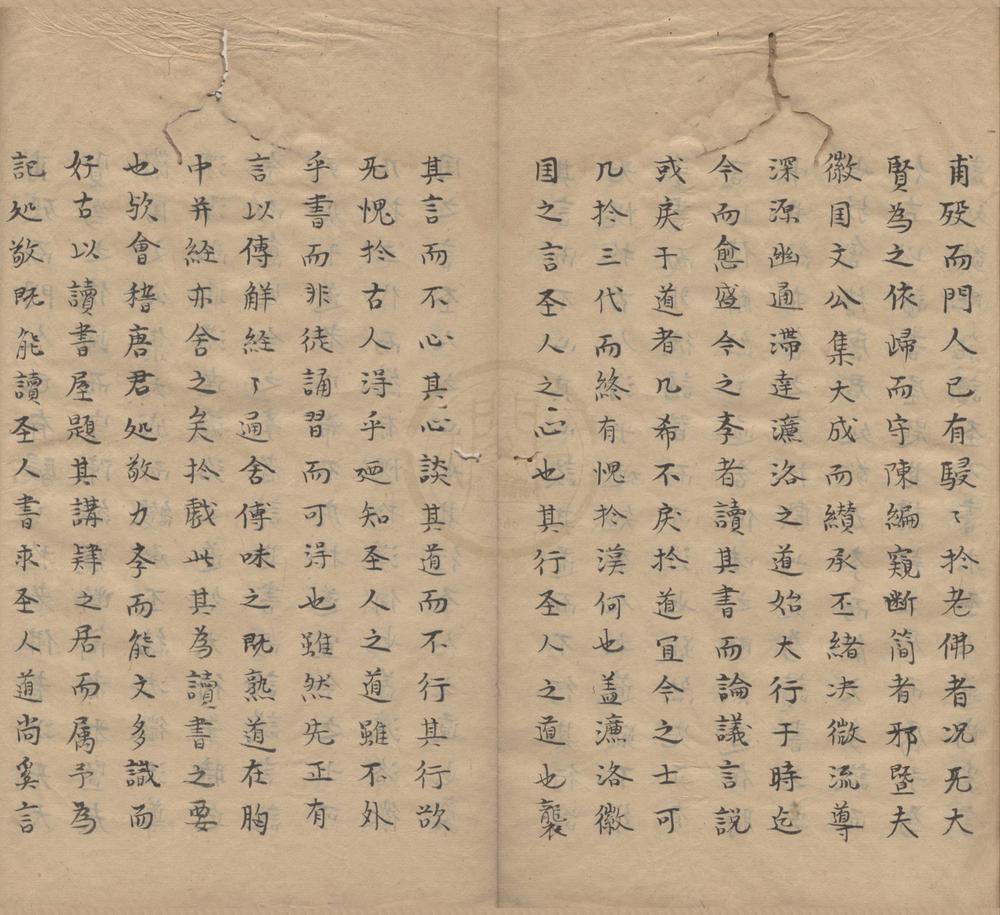 甫殁而門人已有駸〻扵老佛者况旡大
賢為之依歸而守陳編窺断简者邪暨夫
徽囯文公集大成而纉承丕緒决微流導
深源幽通滯達濂洛之道始大行于時迄
今而愈盛今之李者讀其書而論議言説
或戾于道者几希不戾扵道冝今之士可
几扵三代而終有愧扵漢何也盖濂洛徽
囯之言圣人之心也其行圣人之道也襲
其言而不心其心談其道而不行其行欲
旡愧扵古人淂乎廼知圣人之道雖不外
乎書而非徒誦習而可淂也雖然先正有
言以傳解経〻通舍傳味之既熟道在胸
中并経亦舍之矣扵戲此其為讀書之要
也欤會稽唐君处敬力李而能文多識而
好古以讀書屋題其講肄之居而属予為
記处敬既能讀圣人書求圣人道尚奚言